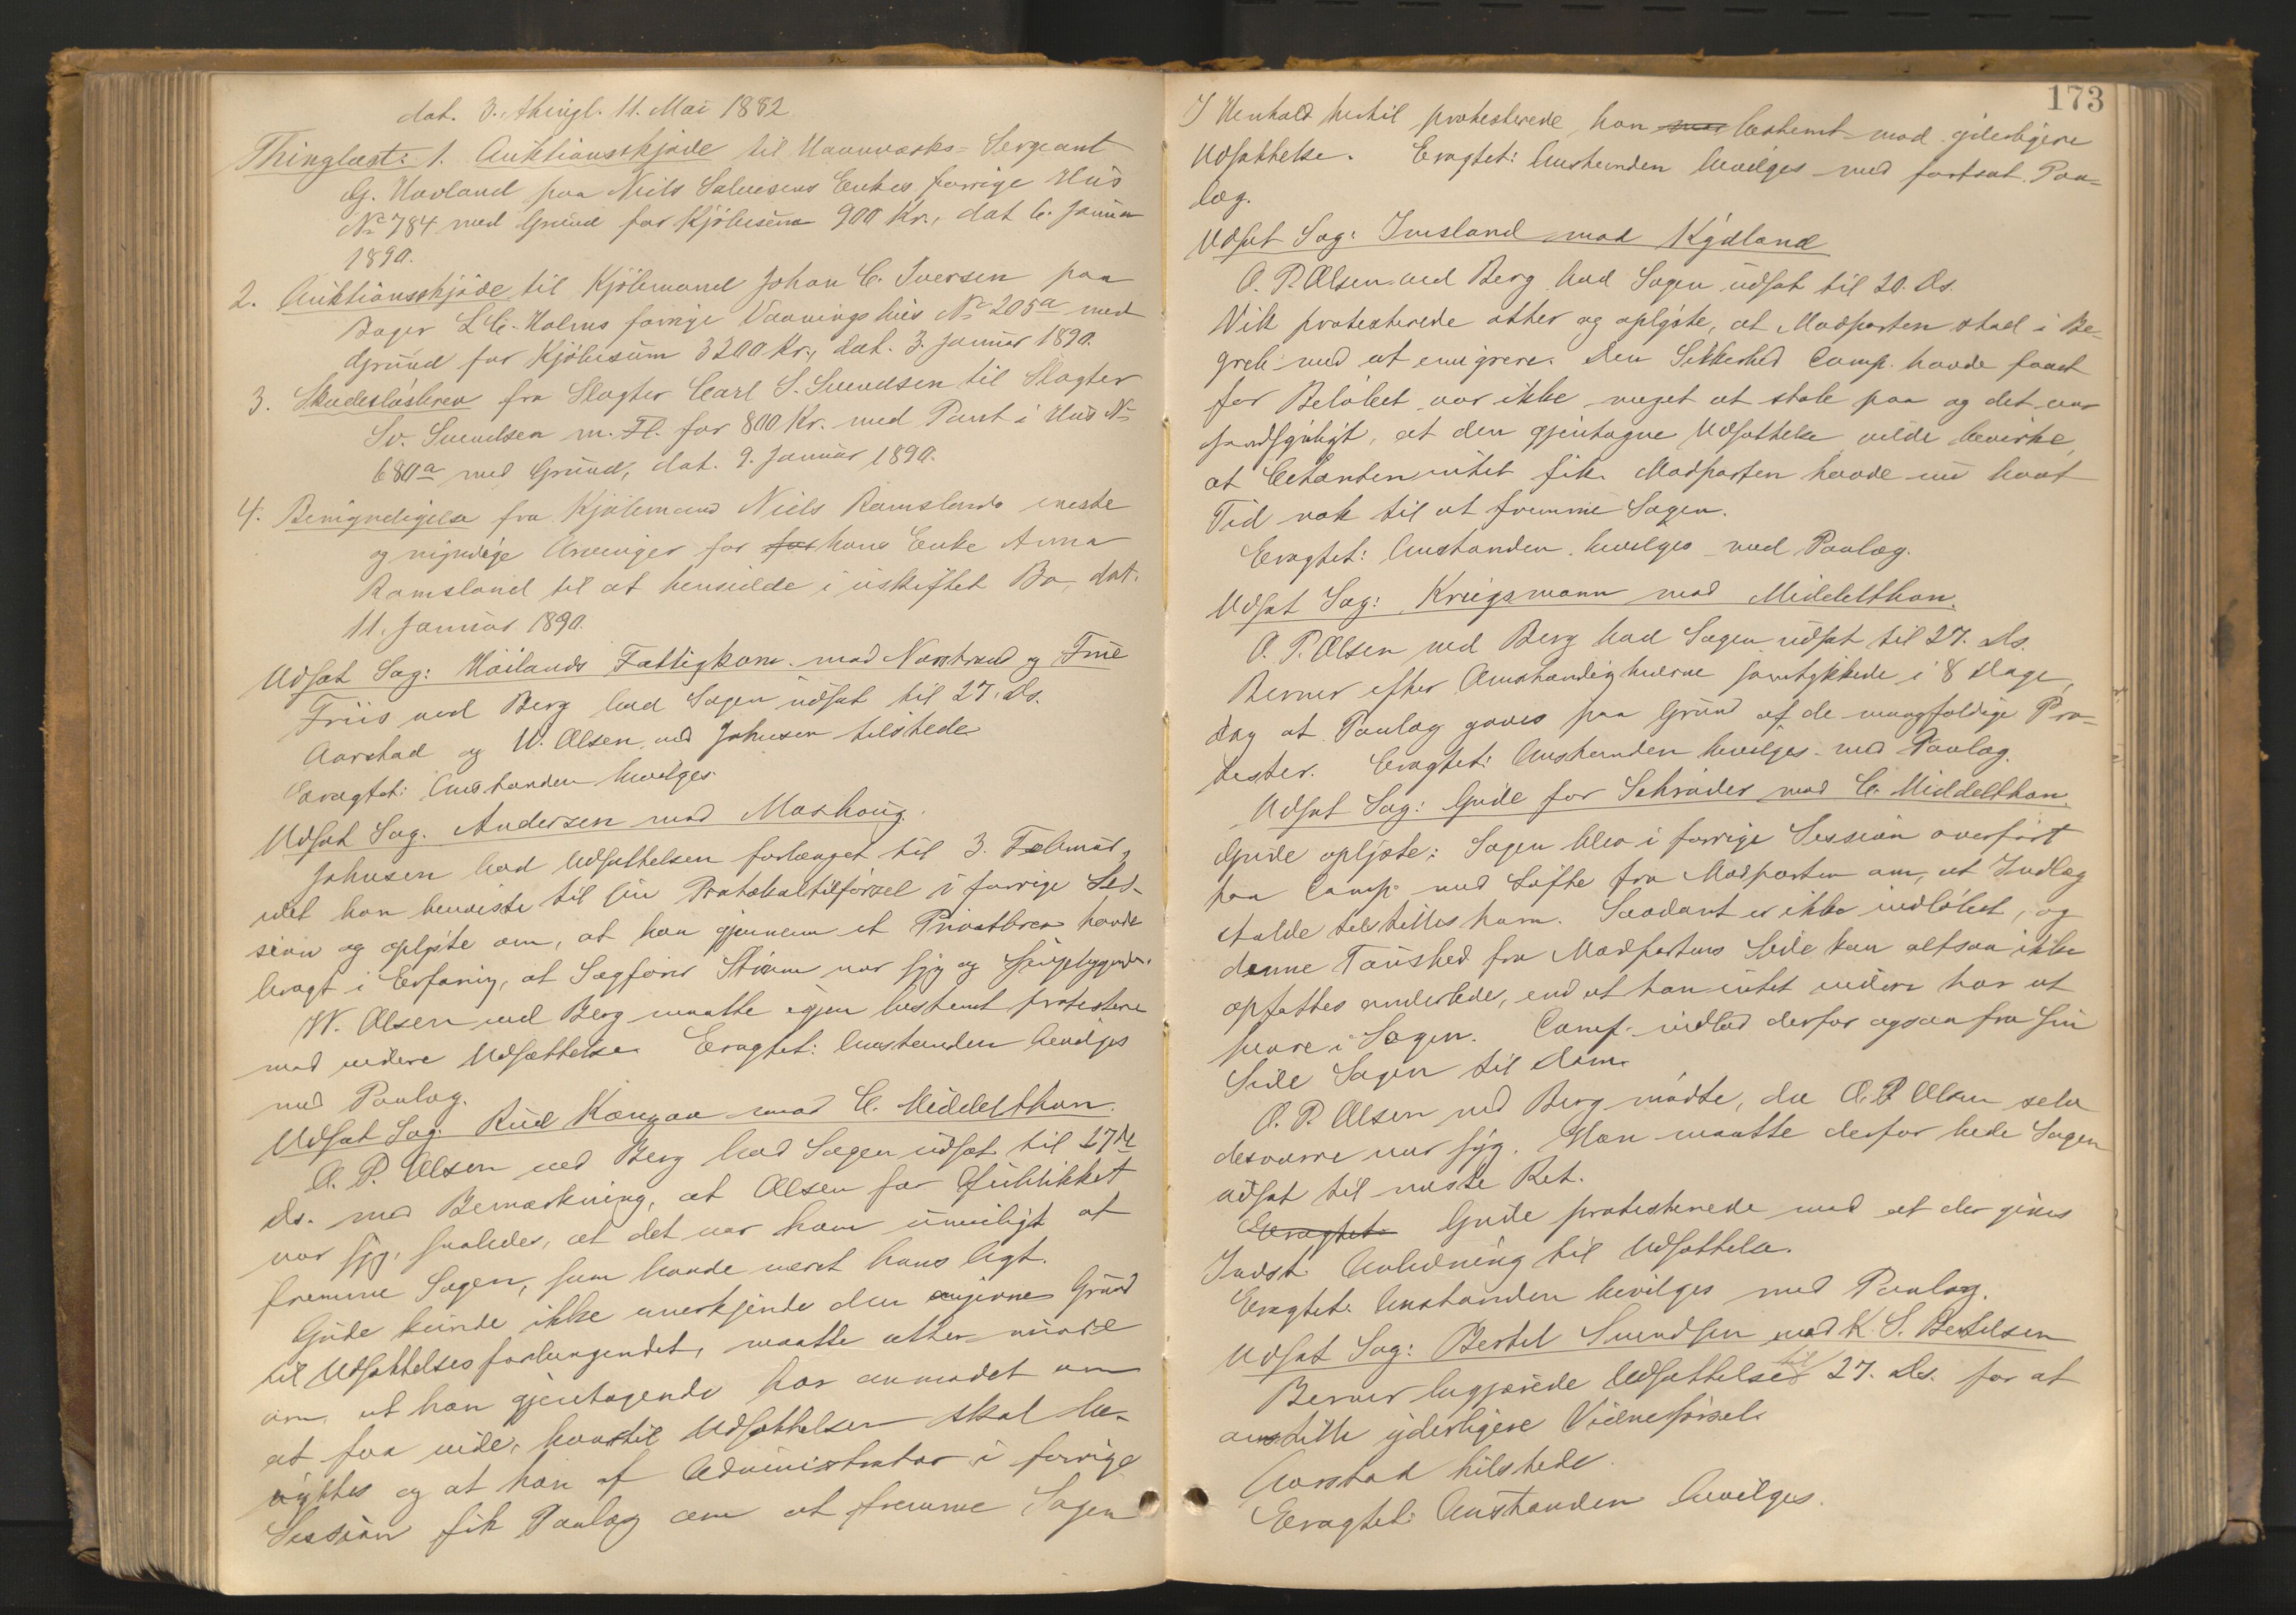 dat. 3., thingl. 11. Mai 1882
Thinglæst: 1. Auktionsskjøde til Haandværks-Sergeant
G. Havland paa Niels Salvesens Enkes forrige Hus
No 784 med Grund for Kjøbesum 900 Kr., dat 6. Januar
1890.
2. Auktionsskjøde til Kjøbmand Johan C. Iversen paa
Bager L. C. Holms forrige Vaaningshus No 205a med
Grund for Kjøbesum 3200 Kr., dat. 3. Januar 1890.
3. Skadesløsbrev fra Slagter Carl S. Svendsen til Slagter
Sv. Svendsen m. Fl. for 800 Kr. med Pant i Hus No
680a med Grund, dat. 9. Januar 1890.
4. Bemyndigelse fra Kjøbmand Niels Ramslands eneste
og myndige Arvinger for for hans Enke Anna
Ramsland til at hensidde i uskiftet Bo, dat.
11. Januar 1890.
Udsat Sag: Höilands Fattigkom. mod Norstrand og Frue
Friis ved Berg bad Sagen udsat til 27. ds.
Aarstad og W. Olsen ved Johnsen tilstede
Eragtet: Anstanden bevilges.
Udsat Sag. Andersen mod Moshoug.
Johnsen bad Udsættelsen forlænget til 3. Februar,
idet han henviste til sin Protokoltilførsel i forrige Ses-
sion og oplyste om, at han gjennem et Privatbrev havde
bragt i Erfaring, at Sagfører Strøm var syg og sengeliggende.
W. Olsen ved Berg maatte igjen bestemt protestere
mod videre Udsættelse. Eragtet: Anstanden bevilges
med Paalæg.
Udsat Sag: Rued Kongaa mod C. Middelthon.
O. P. Olsen ved Berg bad Sagen udsat til 27de
ds. med Bemærkning, at Olsen for Øieblikket
var syg, saaledes, at det var ham umuligt at
fremme Sagen, som havde været hans Agt.
Gude kunde ikke anerkjende den angivne Grund
til Udsættelsesforlangendet, maatte atter minde
om, at han gjentagende har anmodet om
at faa vide, hvortil Udsættelsen skal be-
nyttes og at han af Administrator i forrige
Session fik Paalæg om at fremme Sagen
173
I Henhold hertil protesterede han mod bestemt mod yderligere
Udsættelse. Eragtet: Anstanden bevilges med fortsat Paa-
læg.
Udsat Sag: Imsland mod Kydland
O. P. Olsen ved Berg bad Sagen udsat til 20. ds.
Vik protesterede atter og oplyste, at Modparten stod i Be-
greb med at emigrere. Den Sikkerhed Comp. havde faaet
for Beløbet var ikke noget at stole paa og det var
sandsynligt, at den gjentagne Udsættelse vilde bevirke,
at Citanten intet fik. Modparten havde nu havt
Tid nok til at fremme Sagen.
Eragtet: Anstanden bevilges med Paalæg.
Udsat Sag: Kriegsmann mod Middelthon.
O. P. Olsen ved Berg bad Sagen udsat til 27. ds.
Berner efter Omstændighederne samtykkede i 8 Dage,
dog at Paalæg gaves paa Grund af de mangfoldige Pro-
tester. Eragtet: Anstanden bevilges med Paalæg.
Udsat Sag: Gude for Schrøder mod C. Middelthon.
Gude oplyste: Sagen blev i forrige Session overført
paa Comp. med Løfte fra Modparten om, at Indlæg
skulde tilstilles ham. Saadant er ikke indløbet, og
denne Taushed fra Modpartens Side kan altsaa ikke
opfattes anderledes, end at han intet videre har at
svare i Sagen. Comp. indlod derfor ogsaa fra sin
Side Sagen til Dom.
O. P. Olsen ved Berg mødte, da O. P. Olsen selv
desværre var syg. Han maatte derfor bede Sagen
udsat til næste Ret.
Eragtet Gude protesterede mod at der gives
Indst. Anledning til Udsættelse.
Eragtet: Anstanden bevilges med Paalæg.
Udsat Sag: Bertel Svendsen mod K. S. Bertelsen
Berner begjærede Udsættelse til 27. ds. for at
anstille yderligere Vidneførsel.
Aarstad tilstede.
Eragtet: Anstanden bevilges.